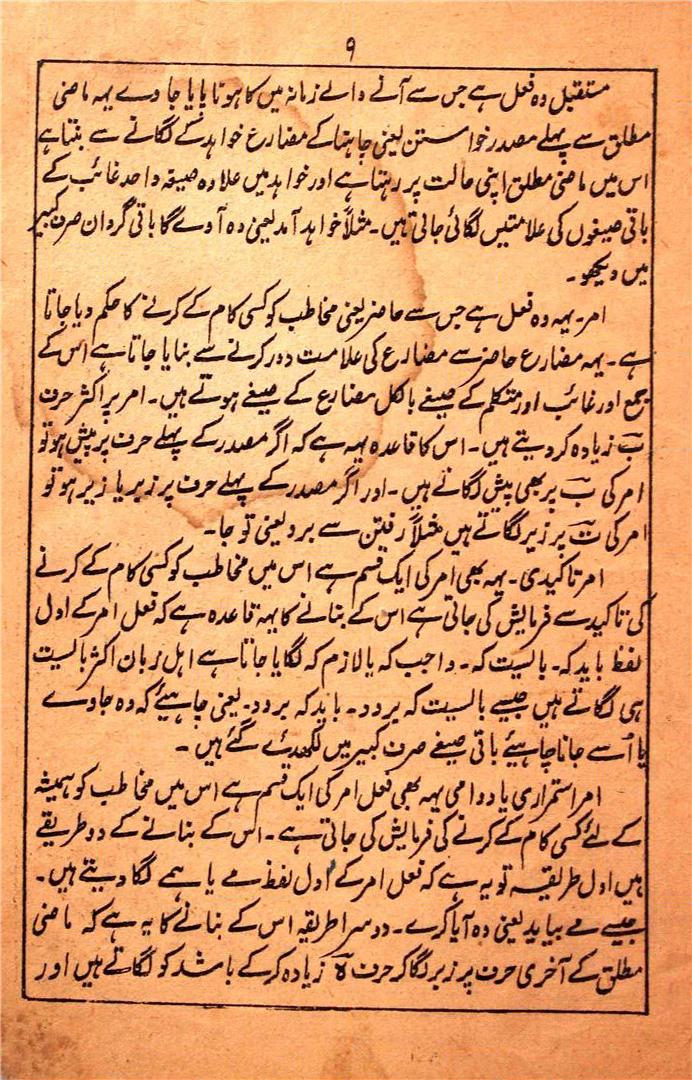 ۹
مستقبل وہ فعل ہے جس سے آنے والے زمانہ میں کا ہونا پایا جاوے یہہ ماضی
مطلق سے پہلے مصدر خواستن یعنی چاہنا کے مضارع خواہد کے لگانے سے بنتا ہے
اس میں ماضی مطلق اپنی حالت پر رہتا ہے اور خواہد میں علاوہ صیغہ واحد غائب کے
باقی صیغوں کی علامتیں لگائی جاتی ہیں۔ مثلاً خواہد آمد یعنی وہ آوے گا باقی گردان صرف کبیر
میں دیکھو۔
امر۔ یہہ وہ فعل ہے جس سے حاضر یعنی مخاطب کو کسی کام کے کرنے کا حکم دیا جاتا
ہے۔ یہہ مضارع حاضر سے مضارع کی علامت دور کرنے سے بنایا جاتا ہے اس کے
جمع اور غائب اور متکلم کے صیغے بالکل مضارع کے صیغے ہوتے ہیں۔ امر پر اکثر حرف
ب زیادہ کر دیتے ہیں۔ اس کا قاعدہ یہہ ہے کہ اگر مصدر کے پہلے حرف پر پیش ہو تو
امر کی ب پر بھی پیش لگاتے ہیں۔ اور اگر مصدر کے پہلے حرف پر زبر یا زیر ہو تو
امر کی ت پر زیر لگاتے ہیں مثلاً رفیتن سے برو یعنی تو جا۔
امر تاکیدی۔ یہہ بھی امر کی ایک قسم ہے اس میں مخاطب کو کسی کام کے کرنے
کی تاکید سے فرمایش کی جاتی ہے اس کے بنانے کا یہہ قاعدہ ہے کہ فعل امر کے اول
لفظ باید کہ۔ بالیست کہ۔ واجب کہ یا لازم کہ لگایا جاتا ہے اہل زبان اکثر بالیست
ہی لگاتے ہیں جیسے بالیست کہ برود۔ باید کہ برود۔ یعنی چاہیئے کہ وہ جاوے
یا اُسے جانا چاہیئے باقی صیغے صرف کبیر میں لکھدئے گئے ہیں۔
امر استمراری یا دوامی یہہ بھی فعل امر کی ایک قسم ہے اس میں مخاطب کو ہمیشہ
کے لئے کسی کام کے کرنے کی فرمایش کی جاتی ہے۔ اس کے بنانے کے دو طریقے
ہیں اول طریقہ تو یہ ہے کہ فعل امر کے اول لفظ مے یا ہمے لگا دیتے ہیں۔
جیسے مے بیاید یعنی وہ آیا کرے۔ دوسرا طریقہ اس کے بنانے کا یہ ہے کہ ماضی
مطلق کے آخری حرف پر زبر لگا کر حرف ہ زیادہ کر کے باشد کو لگاتے ہیں اور